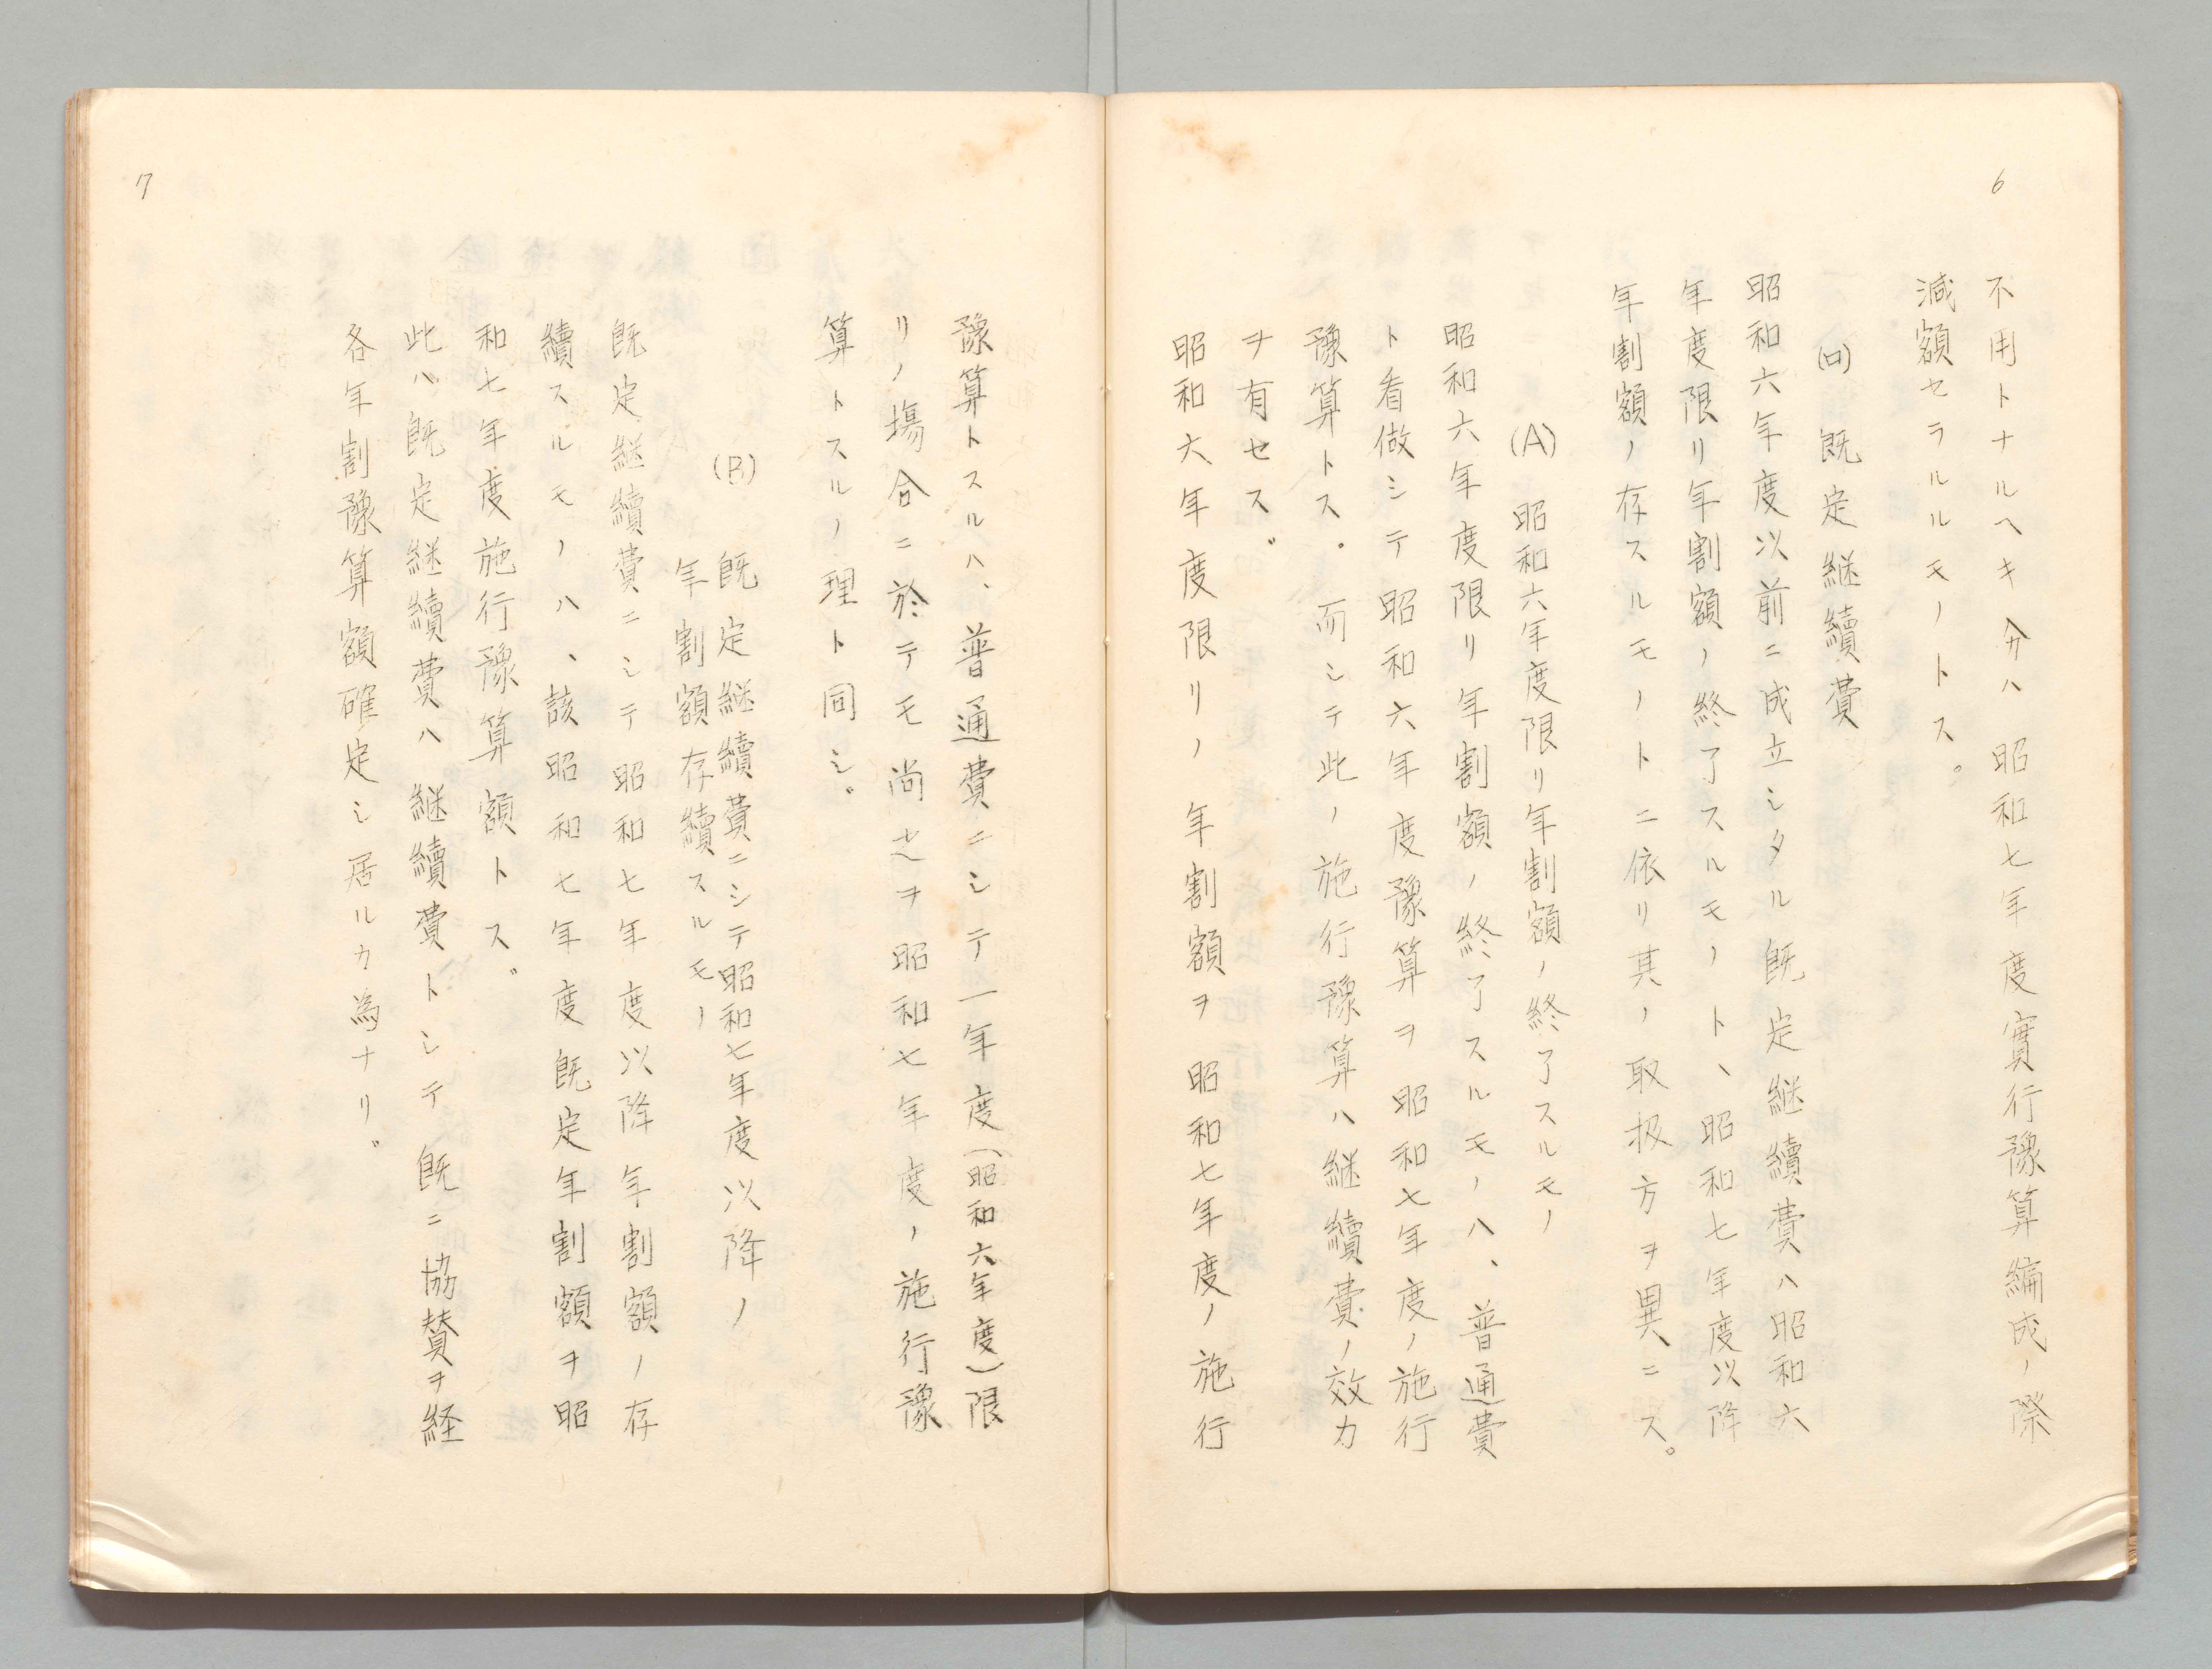 6
不用トナルヘキ分ハ昭和七年度實行豫算編成ノ際
減額セラルルモノトス。
(ロ) 既定継續費
昭和六年度以前ニ成立シタル既定継續費ハ昭和六
年度限リ年割額ノ終了スルモノト、昭和七年度以降
年割額ノ存スルモノトニ依リ其ノ取扱方ヲ異ニス。
(A) 昭和六年度限リ年割額ノ終了スルモノ
昭和六年度限リ年割額ノ終了スルモノハ、普通費
ト看做シテ昭和六年度豫算ヲ昭和七年度ノ施行
豫算トス。而シテ此ノ施行豫算ハ継續費ノ效力
ヲ有セス。
昭和六年度限リノ年割額ヲ昭和七年度ノ施行
豫算トスルハ、普通費ニシテ一年度(昭和六年度)限
リノ場合ニ於テモ尚之ヲ昭和七年度ノ施行豫
算トスルノ理ト同シ。
(B) 既定継續費ニシテ昭和七年度以降ノ
年割額存續スルモノ
既定継續費ニシテ昭和七年度以降年割額ノ存
續スルモノハ、該昭和七年度既定年割額ヲ昭
和七年度施行豫算額トス。
此ハ既定継續費ハ継續費トシテ既ニ協賛ヲ経
各年割豫算額確定シ居ルカ為ナリ。
7